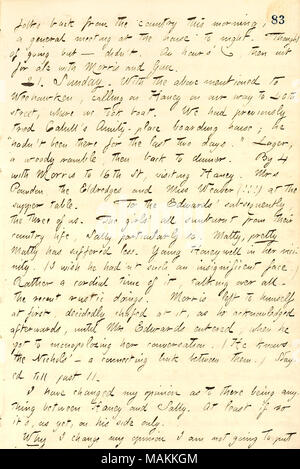 83
folks back from the country this morning,
a general meeting at the house to night. Thought
of going but didn't. An hours' then out
for ale with Morris and Gun.
21. Sunday. With the above mentioned to
Weehawken, calling on Haney on our way to 40th
street, where we took boat. We had previously
tried Cahill's Amity place boarding house; he
"hadn't been there for the last two days." Lager,
a woody ramble, then back to dinner. By 4
with Morris to 16th St, visiting Haney. Mrs
Pounden, the Eldredges and Miss Weaver (!!!!) at the
supper table. To the Edwards' subsequently
the three of us. The girls all sunburnt from their
country life, Sally particularly so. Matty, pretty
Matty has suffered less. Young Honeywell in her vici-
nity. (I wish he had n't such an insignificant face.)
Rather a cordial time of it, talking over all
the recent rustic doings. Morris left to himself
at first, decidedly shyed at it, as he acknowledged
afterwards, until Mrs Edwards entered, when he
got to monopolizing her conversation. (He knows
the Nichols' - a connecting link between them.) Stay-
ed till just 11.
I have changed my opinion as to there being any
thing between Haney and Sally. At least if so
it's, as yet, on his side only.
Why I change my opinion I am not going to put
alamy
Image ID: MAKKGM
www.alamy.com